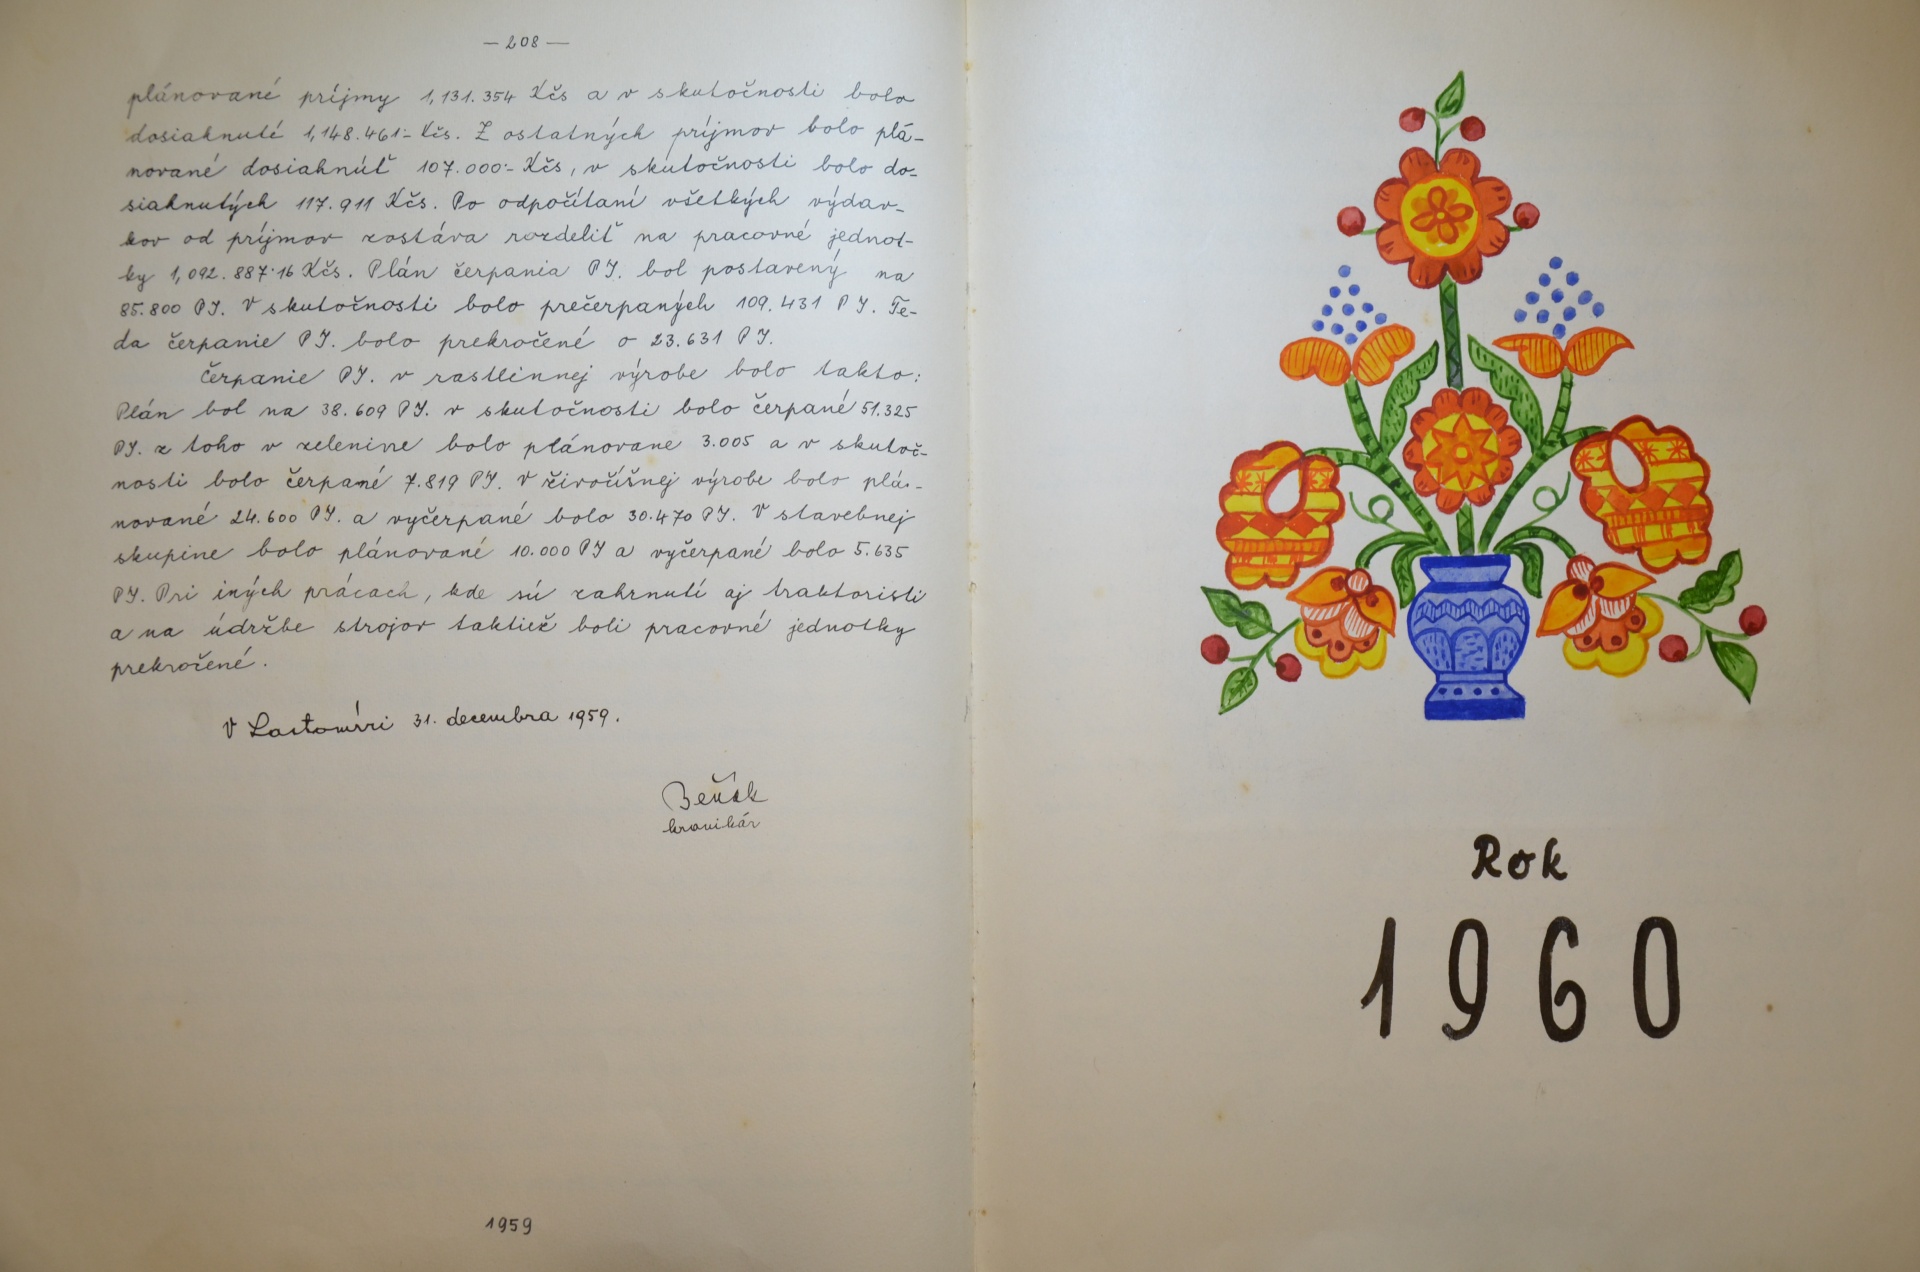 — 208 —
plánované príjmy 1,131.354 Kčs a v skutočnosti bolo
dosiahnuté 1,148.461·- Kčs. Z ostatných príjmov bolo plá-
nované dosiahnúť 107.000·- Kčs, v skutočnosti bolo do-
siahnutých 117.911 Kčs. Po odpočítaní všetkých výdav-
kov od príjmov zostáva rozdeliť na pracovné jednot-
ky 1,092.887·16 Kčs. Plán čerpania PJ. bol postavený na
85.800 PJ. V skutočnosti bolo prečerpaných 109.431 PJ. Te-
da čerpanie PJ. bolo prekročené o 23.631 PJ.
Čerpanie PJ. v rastlinnej výrobe bolo takto:
Plán bol na 38.609 PJ. v skutočnosti bolo čerpané 51.325
PJ. z toho v zelenine bolo plánovane 3.005 a v skutoč-
nosti bolo čerpané 7.819 PJ. V živočíšnej výrobe bolo plá-
nované 24.600 PJ. a vyčerpané bolo 30.470 PJ. V stavebnej
skupine bolo plánované 10.000 PJ a vyčerpané bolo 5.635
PJ. Pri iných prácach, kde sú zahrnutí aj traktoristi
a na údržbe strojov taktiež boli pracovné jednotky
prekročené.
V Lastomíri 31. decembra 1959.
Beňák
kronikár
1959
Rok
1960